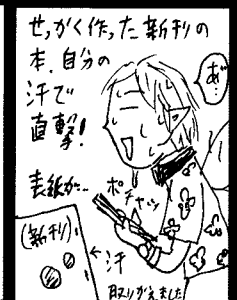 せっかく作った新刊の
本、自分の
汗で
直撃!
表紙が…
あ゛、
ポチャッ
(新刊)
←汗
取りかえました